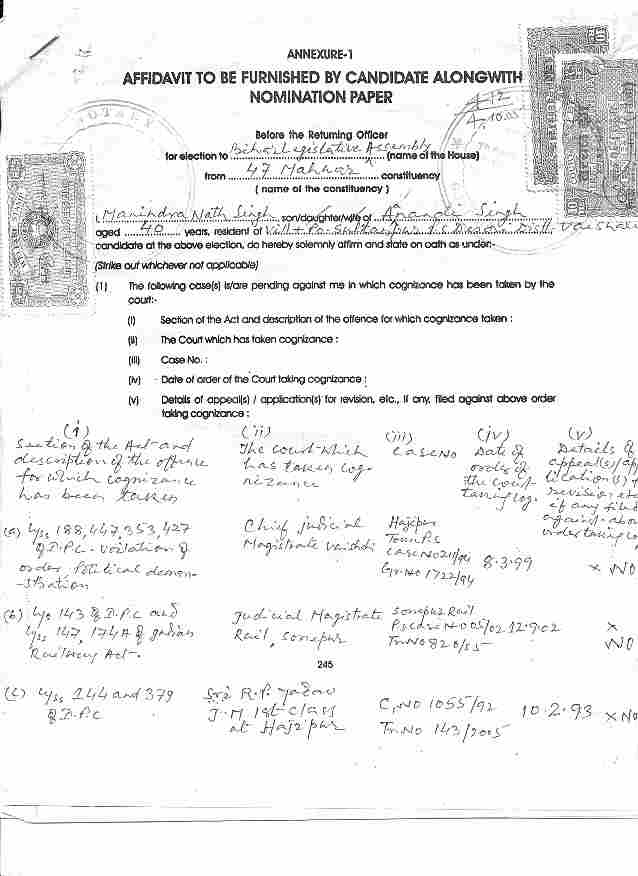 ANNEXURE-1
AFFIDAVIT TO BE FURNISHED BY CANDIDATE ALONGWITH
NOMINATION PAPER
NOTARY
Before the Returning Officer
for election to Bihar Legislative Assembly (name of the House)
from 47 Mahnar constituency
( name of the constituency )
I, Manindra Nath Singh son/daughter/wife of Anandi Singh
aged 40 years, resident of Vill + Po- Sultanpur P.S Desari Distt. Vaishali
candidate at the above election, do hereby solemnly affirm and state on oath as under:-
(Strike out whichever not applicable)
(1) The following case(s) is/are pending against me in which cognizance has been taken by the
court:-
(i) Section of the Act and description of the offence for which cognizance taken :
(ii) The Court which has taken cognizance :
(iii) Case No. :
(iv) Date of order of the Court taking cognizance :
(v) Details of appeal(s) / application(s) for revision, etc., if any, filed against above order
taking cognizance :
(i) (ii) (iii) (iv) (v)
Section of the Act and The court which Case No Date of Details of
description of the offence has taken cog- order of appeal(s)/ap
for which cognizance nizance the court lication(s) f
has been taken taking cog. revision etc
if any filed
against abo
order taking co
(a) U/ss 188,447,353,427 Chief Judicial Hajipur
of I.P.C. voilation of Magistrate Vaishali Town P.S 8.3.99 x No
order Political demon- Case No
-stration Gr. No 1722/94
(b) U/s 143 of I.P.C and Judicial Magistrate Sonepur Rail
U/ss 147, 174A of Indian Rail, Sonepur P.S Case No 05/02 12.9.02 x
Railway Act. Tr. No 820/05 No
245
(c) U/ss 144 and 379 Sri R.P. Yadav C. No 1055/92 10.2.93 x No
of I.P.C J.M 1st class Tr. No 143/2005
at Hajipur